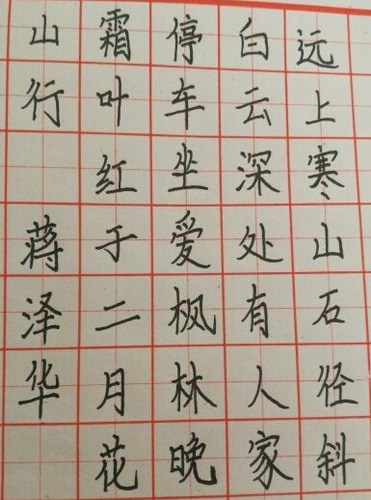 远上寒山石径斜
白云深处有人家
停车坐爱枫林晚
霜叶红于二月花
山行 蒋泽华